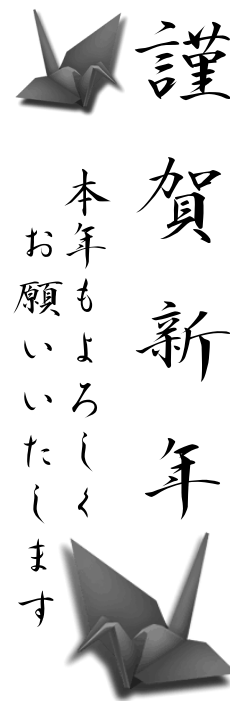 謹賀新年
本年もよろしく
お願いいたします